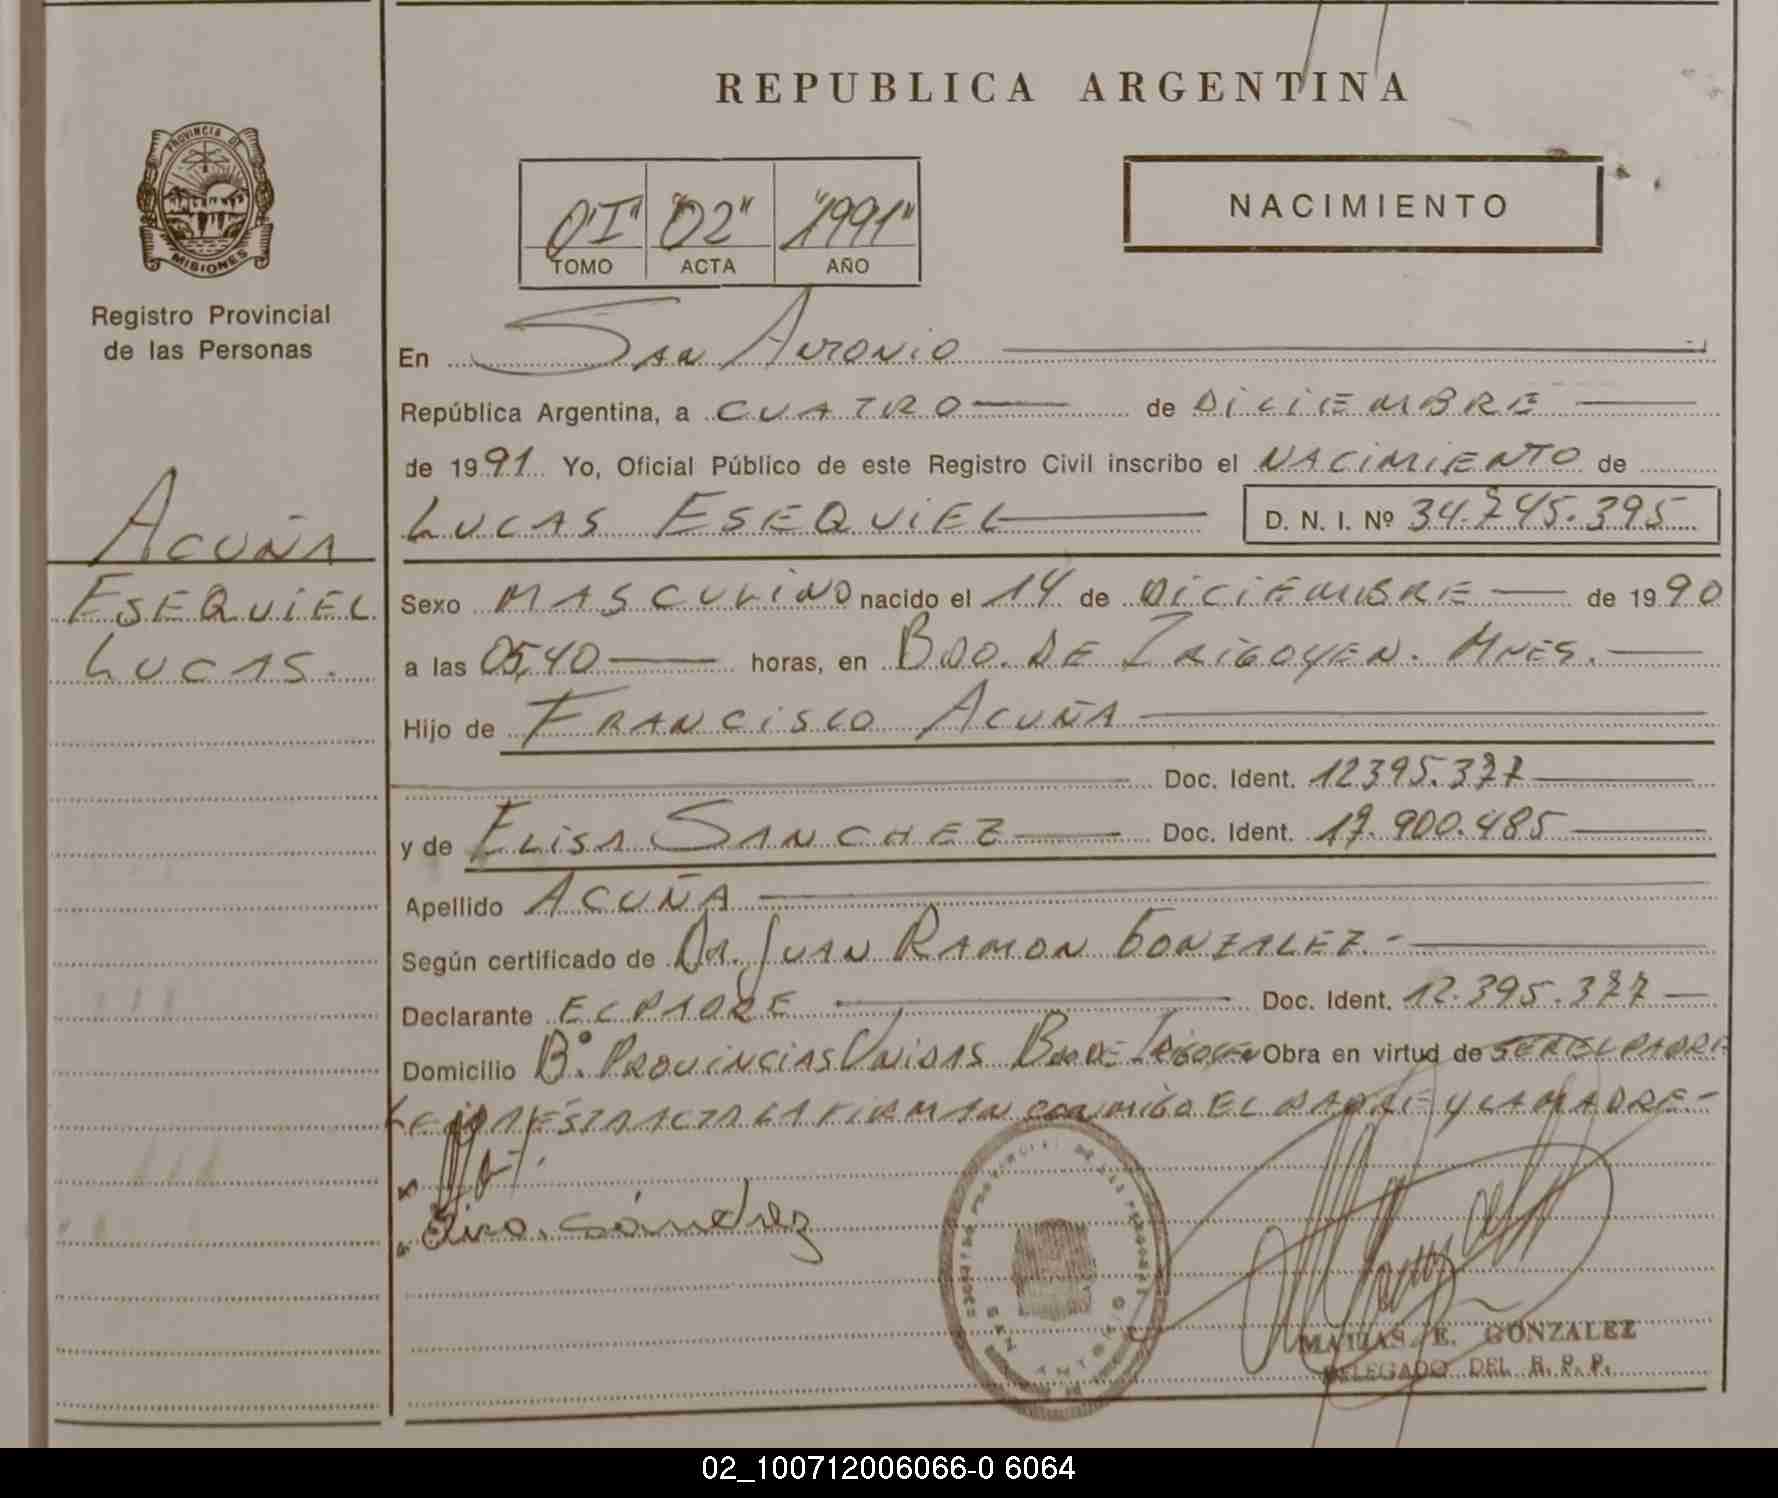 REPUBLICA ARGENTINA
PROVINCIA DE
MISIONES
Registro Provincial
de las Personas
"02" "1991"
TOMO ACTA AÑO
NACIMIENTO
En San Antonio
República Argentina, a CUATRO de DICIEMBRE
de 1991 Yo, Oficial Público de este Registro Civil inscribo el NACIMIENTO de
LUCAS ESEQUIEL D. N. I. Nº 34.745.395
ACUÑA
ESEQUIEL
LUCAS.
Sexo MASCULINO nacido el 14 de DICIEMBRE de 1990
a las 05,40 horas, en BDO. DE IRIGOYEN. MNES.
Hijo de FRANCISCO ACUÑA
Doc. Ident. 12395.377
y de ELISA SANCHEZ Doc. Ident. 17.900.485
Apellido ACUÑA
Según certificado de DR. JUAN RAMON GONZALEZ.-
Declarante EL PADRE Doc. Ident. 12.395.377
Domicilio Bº. PROVINCIAS UNIDAS BDO DE IRIGOYEN Obra en virtud de SER EL PADRE
LEIDA ESTA ACTA LA FIRMAN CONMIGO EL PADRE Y LA MADRE.-
Elisa. Sánchez
SAN ANTONIO
MATIAS. E. GONZALEZ
DELEGADO DEL R. P. P.
02_100712006066-0 6064